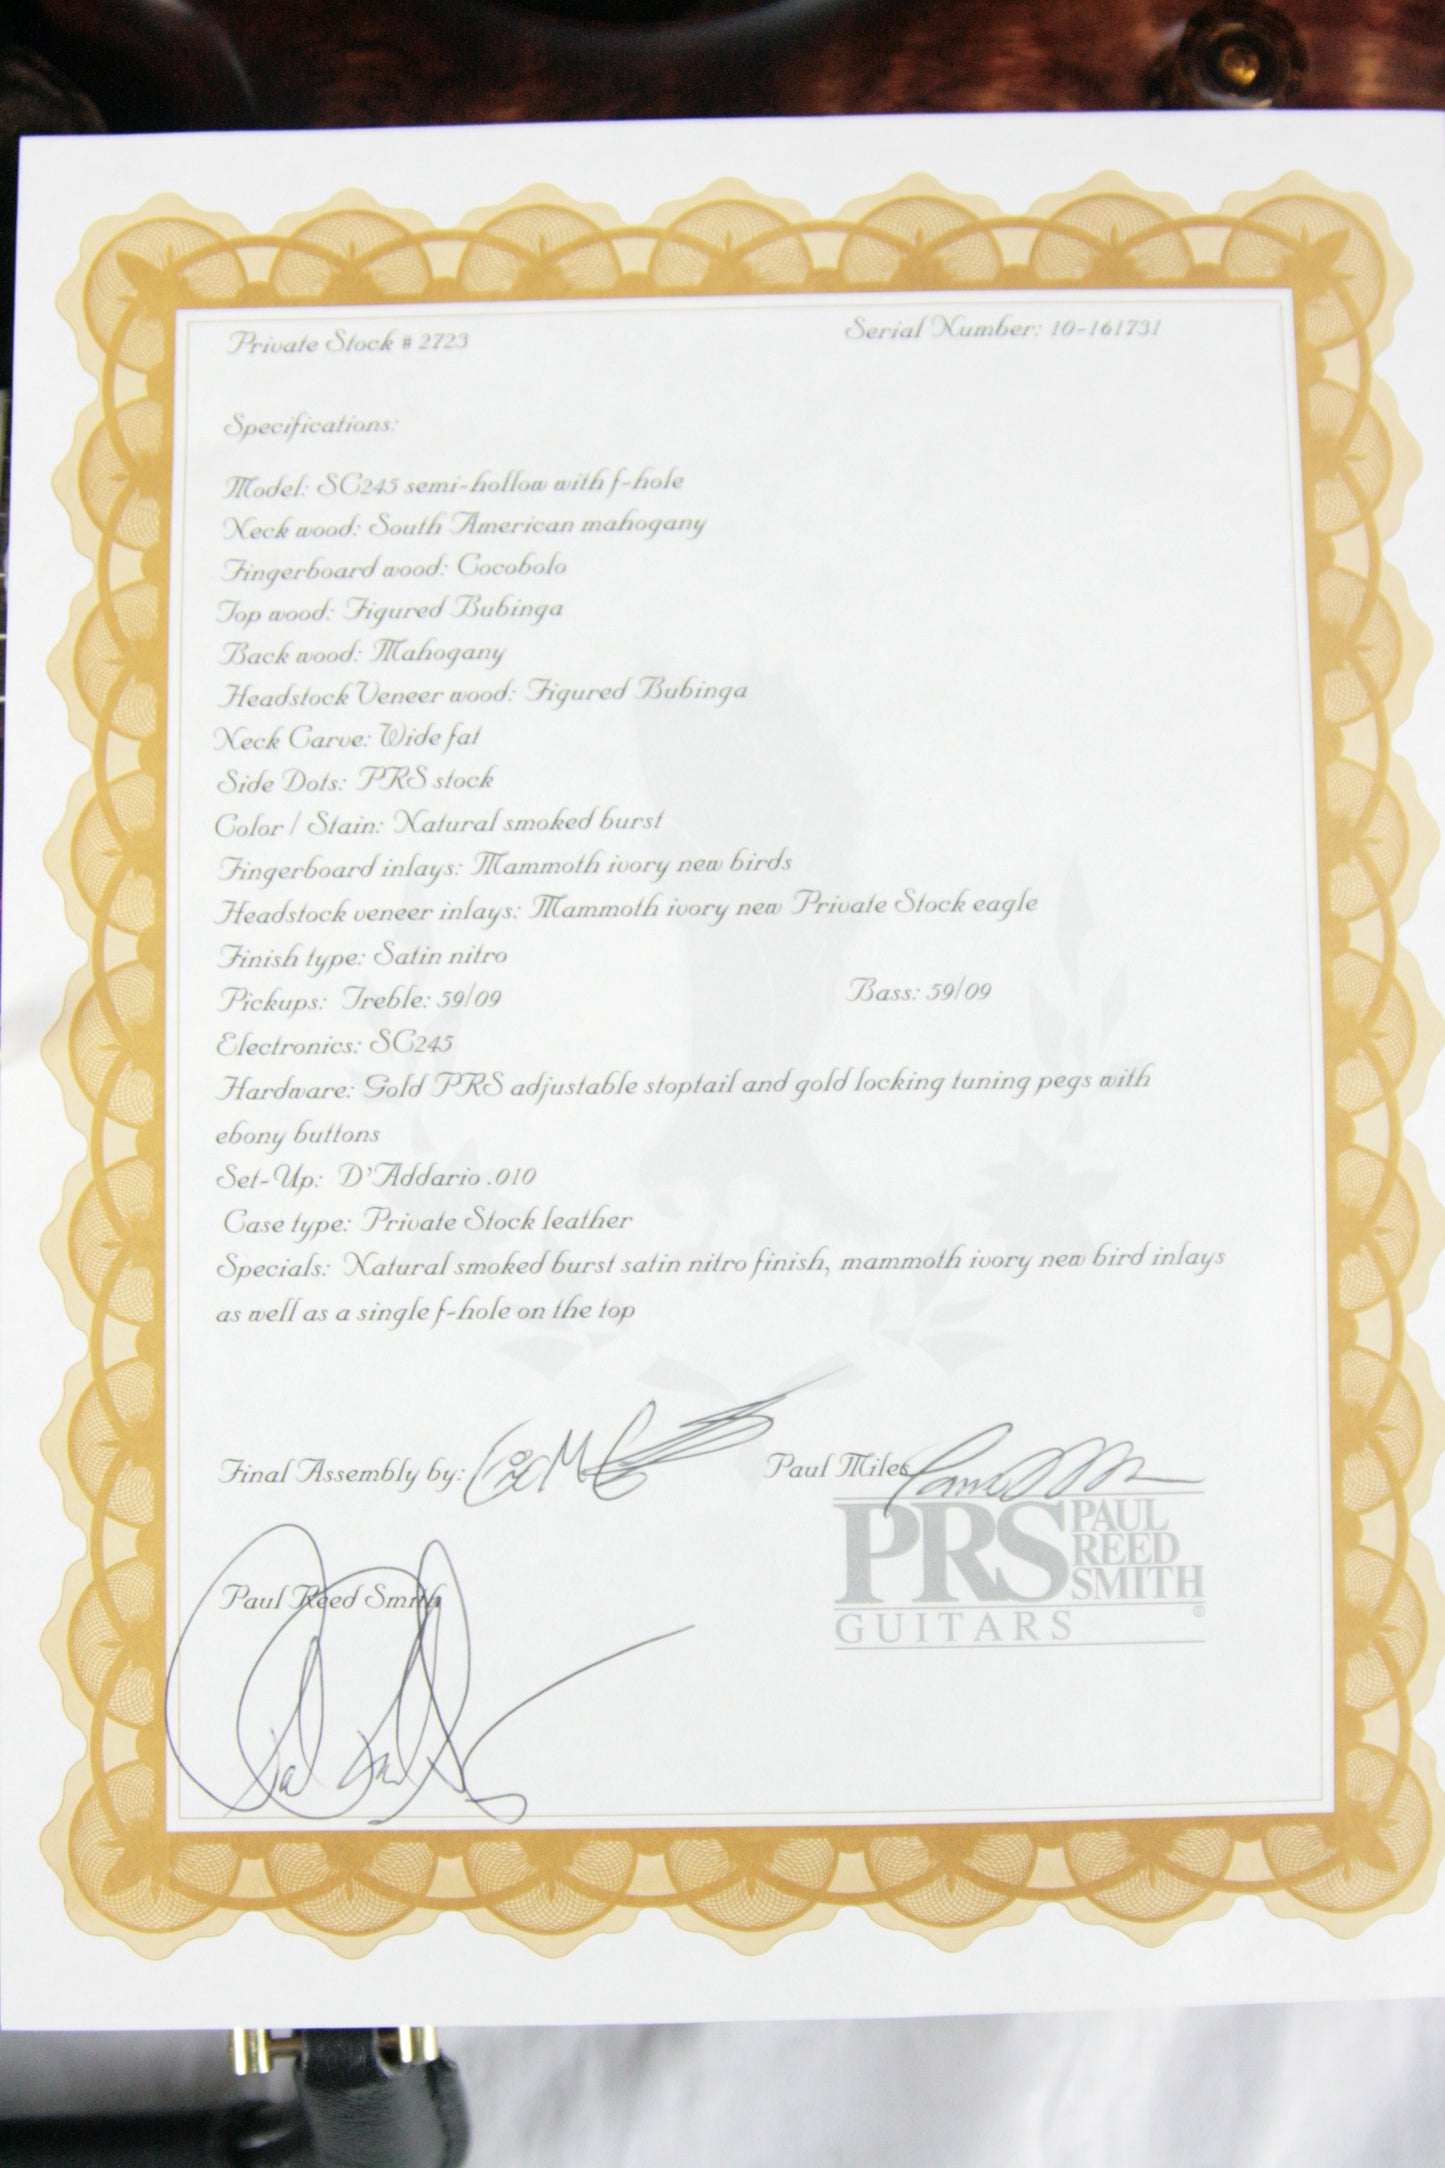 Private Stock # 2723 Serial Number: 10-161731
Specifications:
Model: SC245 semi-hollow with f-hole
Neck wood: South American mahogany
Fingerboard wood: Cocobolo
Top wood: Figured Bubinga
Back wood: Mahogany
Headstock Veneer wood: Figured Bubinga
Neck Carve: Wide fat
Side Dots: PRS stock
Color / Stain: Natural smoked burst
Fingerboard inlays: Mammoth ivory new birds
Headstock veneer inlays: Mammoth ivory new Private Stock eagle
Finish type: Satin nitro
Pickups: Treble: 59/09 Bass: 59/09
Electronics: SC245
Hardware: Gold PRS adjustable stoptail and gold locking tuning pegs with
ebony buttons
Set-Up: D'Addario .010
Case type: Private Stock leather
Specials: Natural smoked burst satin nitro finish, mammoth ivory new bird inlays
as well as a single f-hole on the top
Final Assembly by: Paul Miles
PRS PAUL
REED
SMITH
GUITARS ®
Paul Reed Smith